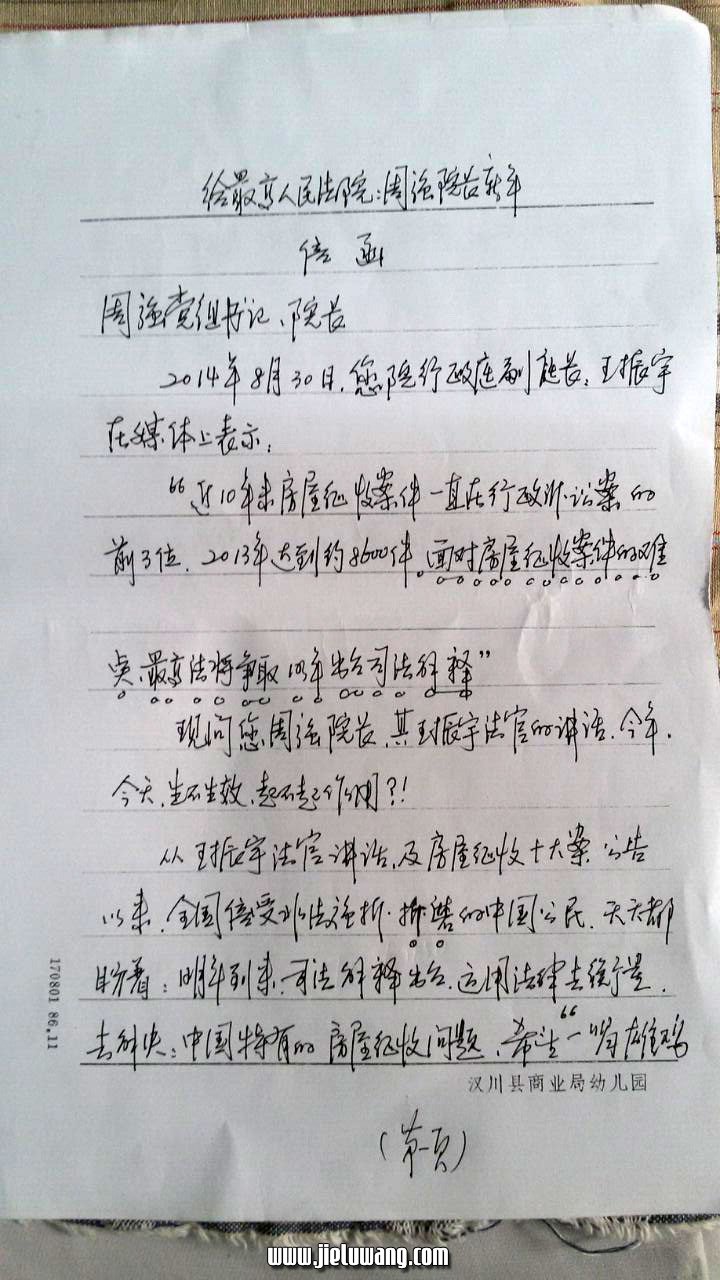 给最高人民法院:周强院长新年
信函
周强党组书记、院长
2014年8月30日,您院行政庭副庭长,王振宇
在媒体上表示:
“近10年来房屋征收案件一直在行政诉讼案的
前3位.2013年达到约8600件.面对房屋征收案件的难
点,最高法将争取明年出台司法解释”
现问您周强院长,其王振宇法官的讲话.今年.
今天.生不生效,起不起作用?!
从王振宇法官讲话,及房屋征收十大案公告
以来,全国倍受非法强拆.折磨的中国公民.天天都
盼着:明年到来,司法解释出台.运用法律去衡量.
去解决:中国特有的房屋征收问题.希望“一唱雄鸡
170801 86.11
汉川县商业局幼儿园
(第一页)
www.jieluwang.com